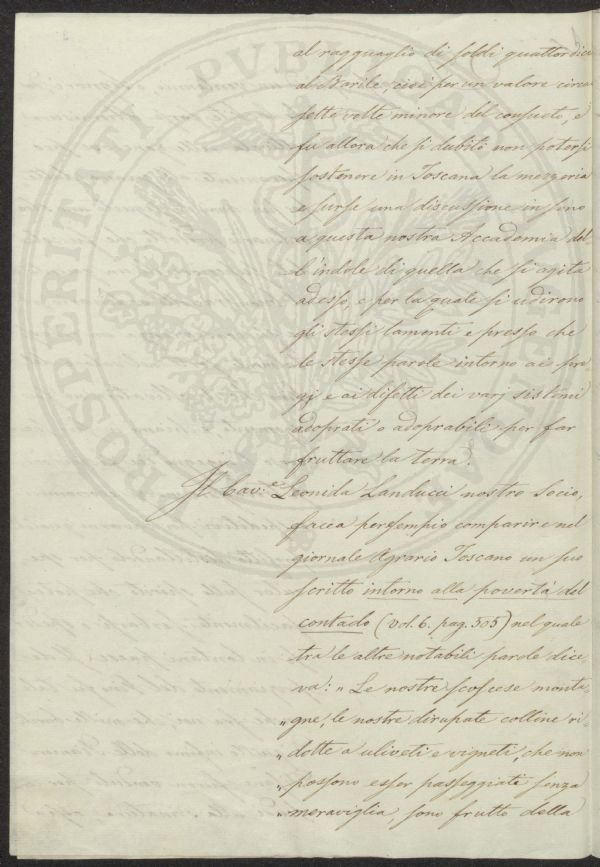 al ragguaglio di soldi quattordici
al Barile, cioè per un valore circa
sette volte minore del consueto, e
fu allora che si dubitò non potersi
sostenere in Toscana la mezzeria
e surse una discussione in seno
a questa nostra Accademia del-
l'indole di quella che si agita
adesso, e per la quale si udirono
gli stessi lamenti e presso che
le stesse parole intorno ai pre-
gi e ai difetti dei varj sistemi
adoprati o adoprabili per far
fruttare la terra.
Il Cav.e Leonida Landucci nostro Socio,
facea per esempio comparire nel
giornale Agrario Toscano un suo
scritto intorno alla povertà del
contado (Vol. 6. pag. 505) nel quale
tra le altre notabili parole dice-
va: „ Le nostre scoscese monta-
„ gne, le nostre dirupate colline ri-
„ dotte a uliveti e vigneti, che non
„ possono esser passeggiate senza
„ meraviglia, sono frutto della
PROSPERITATI PUBLICAE